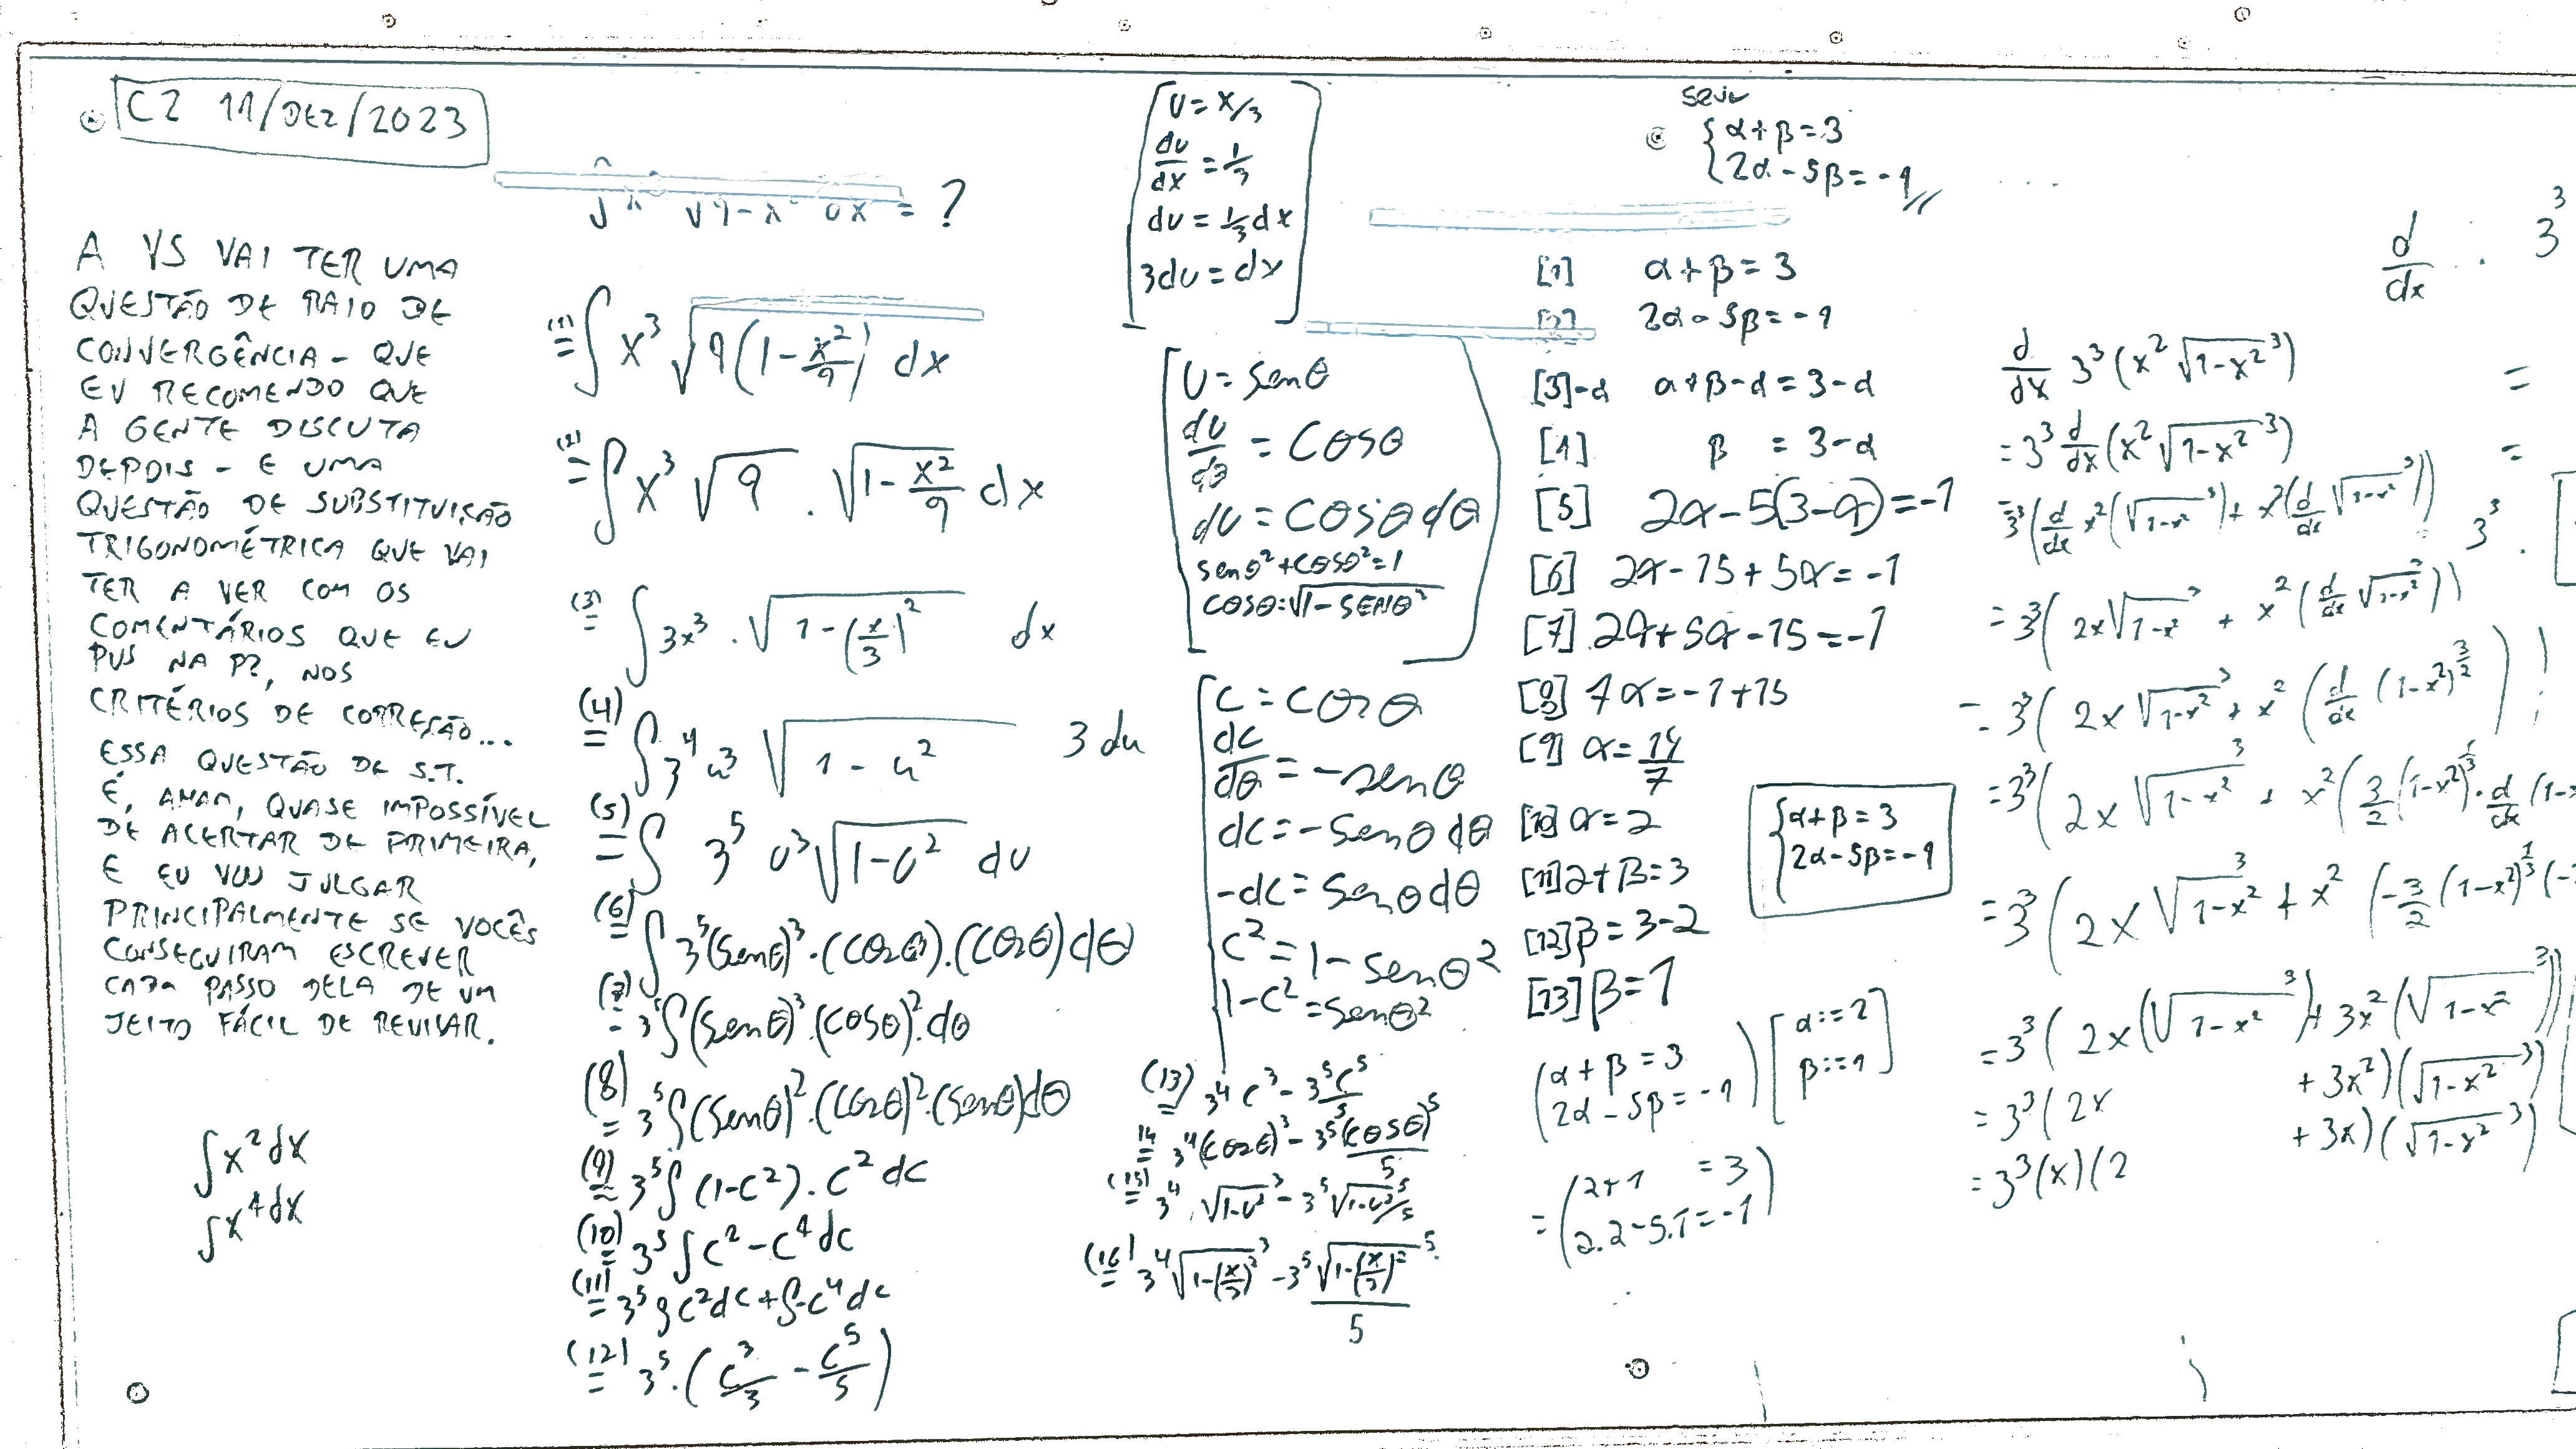 C2 11/DEZ/2023
A VS VAI TER UMA
QUESTÃO DE RAIO DE
CONVERGÊNCIA - QUE
EU RECOMENDO QUE
A GENTE DISCUTA
DEPOIS - E UMA
QUESTÃO DE SUBSTITUIÇÃO
TRIGONOMÉTRICA QUE VAI
TER A VER COM OS
COMENTÁRIOS QUE EU
PUS NA P2, NOS
CRITÉRIOS DE CORREÇÃO...
ESSA QUESTÃO DE S.T.
É, AHAM, QUASE IMPOSSÍVEL
DE ACERTAR DE PRIMEIRA,
E EU VOU JULGAR
PRINCIPALMENTE SE VOCÊS
CONSEGUIRAM ESCREVER
CADA PASSO DELA DE UM
JEITO FÁCIL DE REVISAR.
∫x² dx
∫x⁴ dx
= ?
(1) = ∫ x³ √(9(1 - x²/9)) dx
(2) = ∫ x³ √9 . √(1 - x²/9) dx
(3) = ∫ 3x³ . √(1 - (x/3)²) dx
(4) = ∫ 3⁴ u³ √(1 - u²) 3 du
(5) = ∫ 3⁵ u³ √(1 - u²) du
(6) = ∫ 3⁵ (senθ)³ · (cosθ) · (cosθ) dθ
(7) = 3⁵ ∫ (senθ)³ · (cosθ)² · dθ
(8) = 3⁵ ∫ (senθ)² · (cosθ)² · (senθ) dθ
(9) = 3⁵ ∫ (1-c²) · c² dc
(10) = 3⁵ ∫ c² - c⁴ dc
(11) = 3⁵ ∫ c² dc + ∫ -c⁴ dc
(12) = 3⁵ · (c³/3 - c⁵/5)
u = x/3
du/dx = 1/3
du = 1/3 dx
3du = dx
u = senθ
du/dθ = cosθ
du = cosθ dθ
senθ² + cosθ² = 1
cosθ = √(1 - SENθ²)
c = cosθ
dc/dθ = -senθ
dc = -senθ dθ
-dc = senθ dθ
c² = 1 - senθ²
1 - c² = senθ²
(13) = 3⁴ c³ - 3⁵c⁵/5
14 = 3⁴ (cosθ)³ - 3⁵(cosθ)⁵/5
(15) = 3⁴ . √(1-u²)³ - 3⁵ √(1-u²)⁵/5
(16) = 3⁴ √(1-(x/3)²)³ - 3⁵ √(1-(x/3)²)⁵/5
{ α + β = 3
2α - 5β = -1
[1] α + β = 3
[2] 2α - 5β = -1
[3]-α α + β - α = 3 - α
[4] β = 3 - α
[5] 2α - 5(3 - α) = -1
[6] 2α - 15 + 5α = -1
[7] 2α + 5α - 15 = -1
[8] 7α = -1 + 15
[9] α = 14/7
[10] α = 2
[11] 2 + β = 3
[12] β = 3 - 2
[13] β = 1
(α + β = 3
2α - 5β = -1) [α := 2
β := 1]
= (2 + 1 = 3
2.2 - 5.1 = -1)
{ α + β = 3
2α - 5β = -1
d/dx · 3³
d/dx 3³ (x² √(1-x²)³) =
= 3³ d/dx (x² √(1-x²)³) =
= 3³ (d/dx x² (√(1-x²)³) + x² (d/dx √(1-x²)³)) 3³ .
= 3³ (2x √(1-x²)³ + x² (d/dx √(1-x²)³))
= 3³ (2x √(1-x²)³ + x² (d/dx (1-x²)^(3/2)))
= 3³ (2x √(1-x²)³ + x² (3/2 (1-x²)^(1/3) · d/dx (1-x
= 3³ (2x √(1-x²)³ + x² (-3/2 (1-x²)^(1/3) (-
= 3³ (2x (√(1-x²)³) + 3x² (√(1-x²)³))
= 3³ (2x + 3x²)(√(1-x²)³)
= 3³ (x)(2 + 3x)(√(1-x²)³)